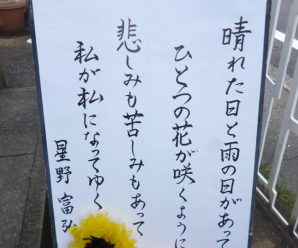 晴れた日と雨の日があって
ひとつの花が咲くように
悲しみも苦しみもあって
私が私になってゆく
星野富弘